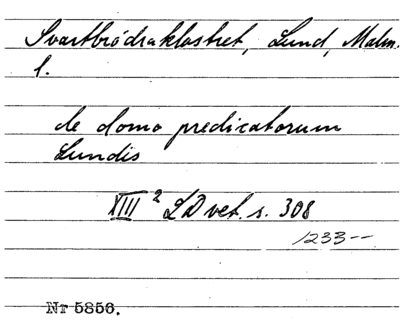 Svartbrödraklostret, Lund, Malm.
l.
de domo predicatorum
Lundis
XIII² LD vet. s. 308
1233--
Nr 5856.